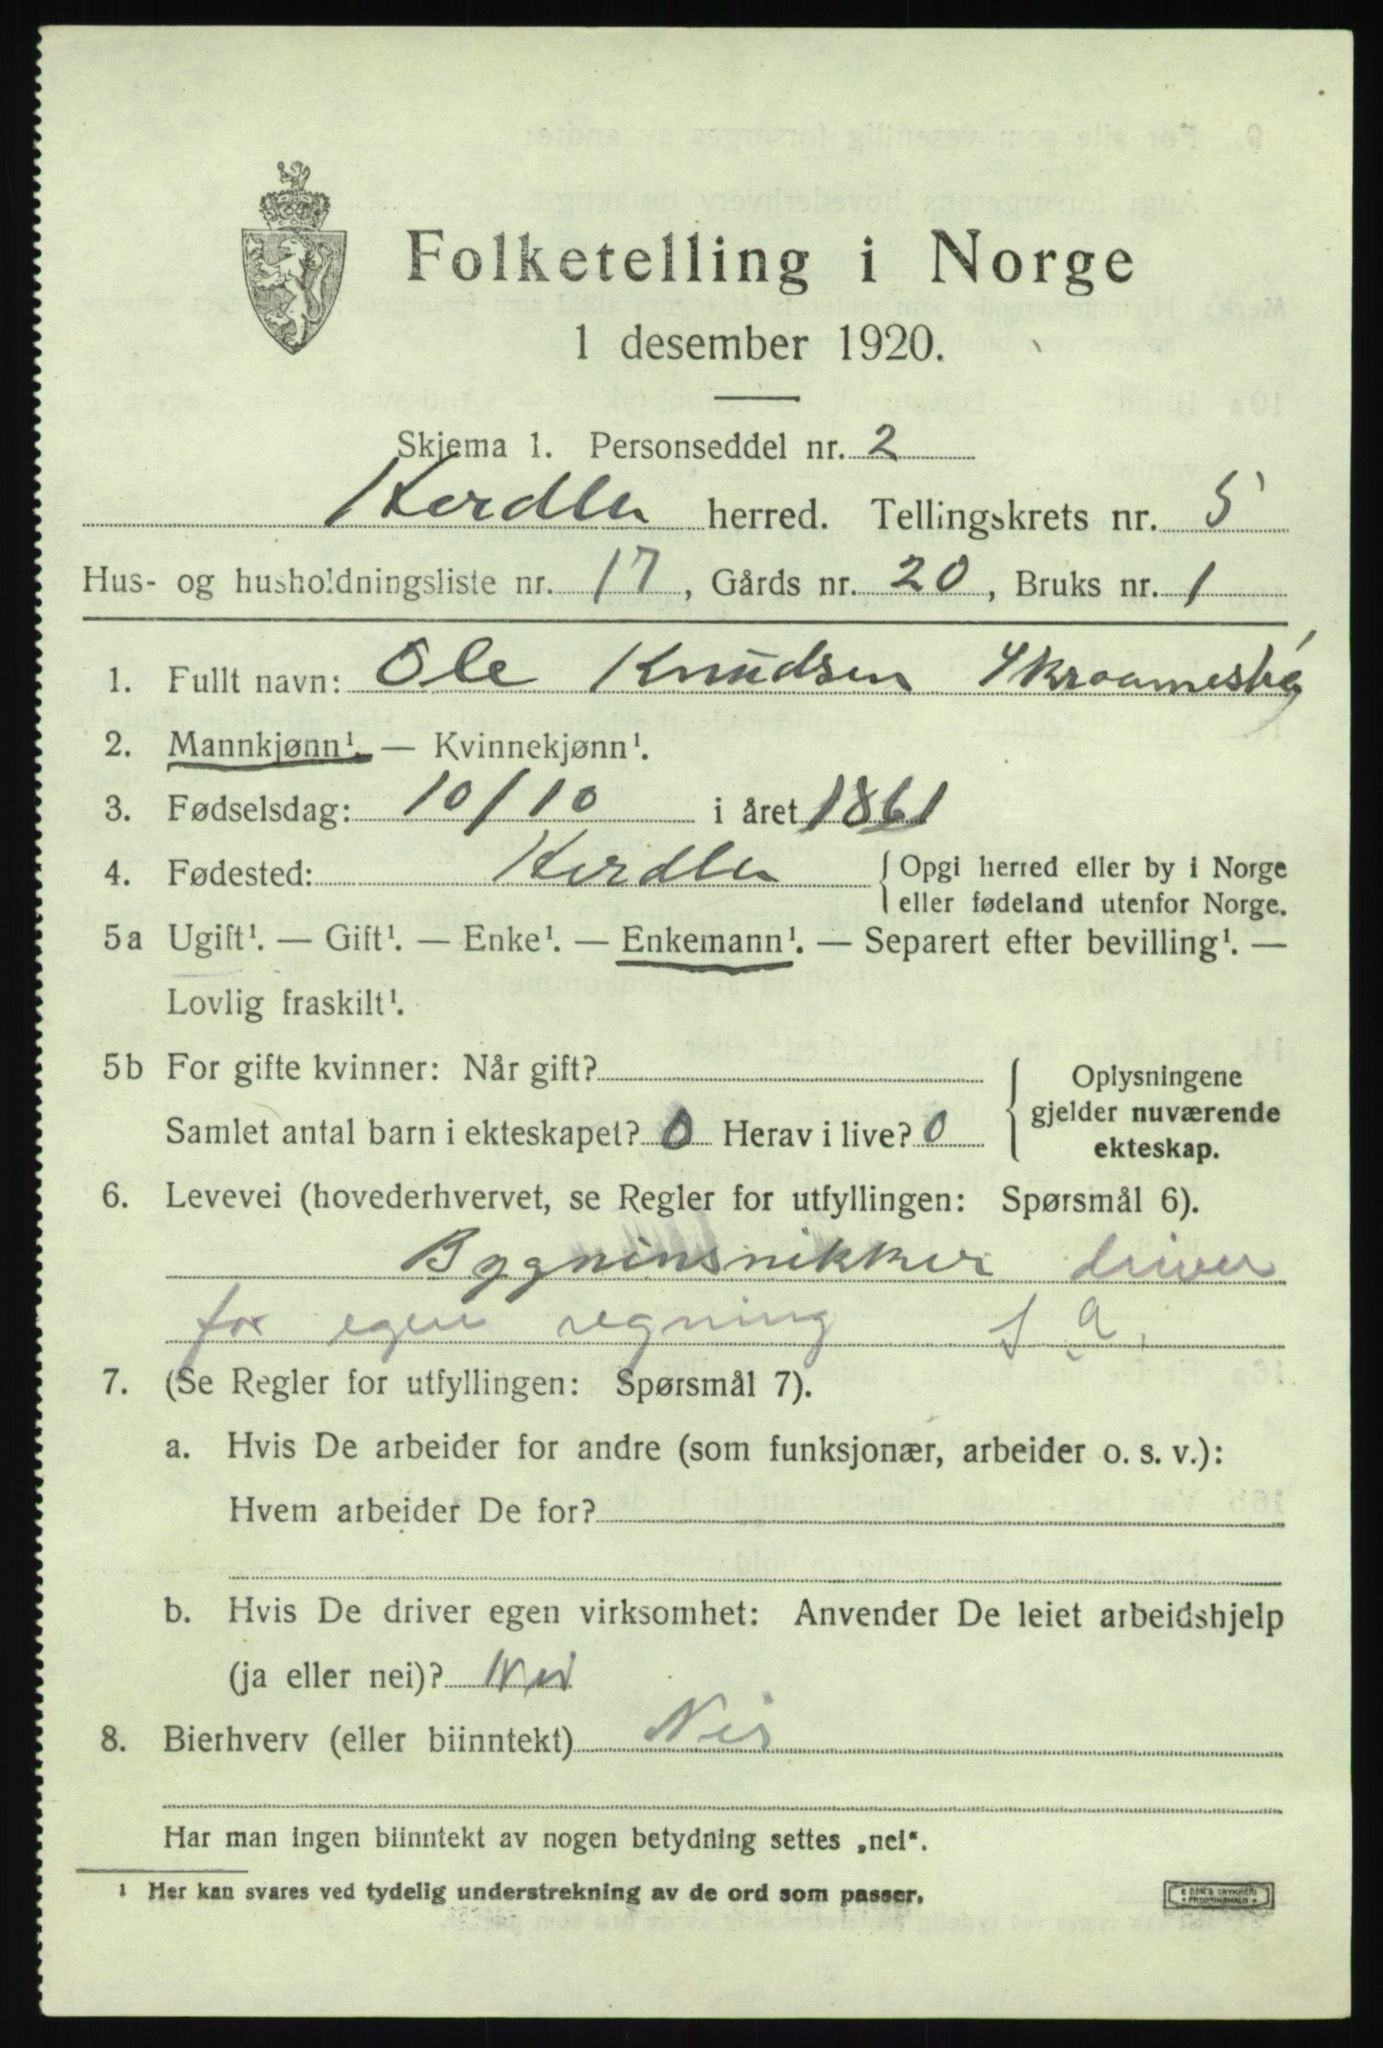 Folketelling i Norge
1 desember 1920.
Skjema 1. Personseddel nr. 2
Herdla herred. Tellingskrets nr. 5
Hus- og husholdningsliste nr. 17, Gårds nr. 20, Bruks nr. 1
1. Fullt navn: Ole Knudsen
2. Mannkjønn¹. — Kvinnekjønn¹.
3. Fødselsdag: 10/10 i året 1861
4. Fødested: Herdla { Opgi herred eller by i Norge
eller fødeland utenfor Norge.
5a Ugift¹. — Gift¹. — Enke¹. — Enkemann¹. — Separert efter bevilling¹. —
Lovlig fraskilt¹.
5b For gifte kvinner: Når gift?
Samlet antal barn i ekteskapet? 0 Herav i live? 0
Oplysningene
gjelder nuværende
ekteskap.
6. Levevei (hovederhvervet, se Regler for utfyllingen: Spørsmål 6).
Bygninsnikker driver
for egen regning S. a.
7. (Se Regler for utfyllingen: Spørsmål 7).
a. Hvis De arbeider for andre (som funksjonær, arbeider o. s. v.):
Hvem arbeider De for?
b. Hvis De driver egen virksomhet: Anvender De leiet arbeidshjelp
(ja eller nei)? Nei
8. Bierhverv (eller biinntekt) Nei
Har man ingen biinntekt av nogen betydning settes „nei“.
¹ Her kan svares ved tydelig understrekning av de ord som passer.